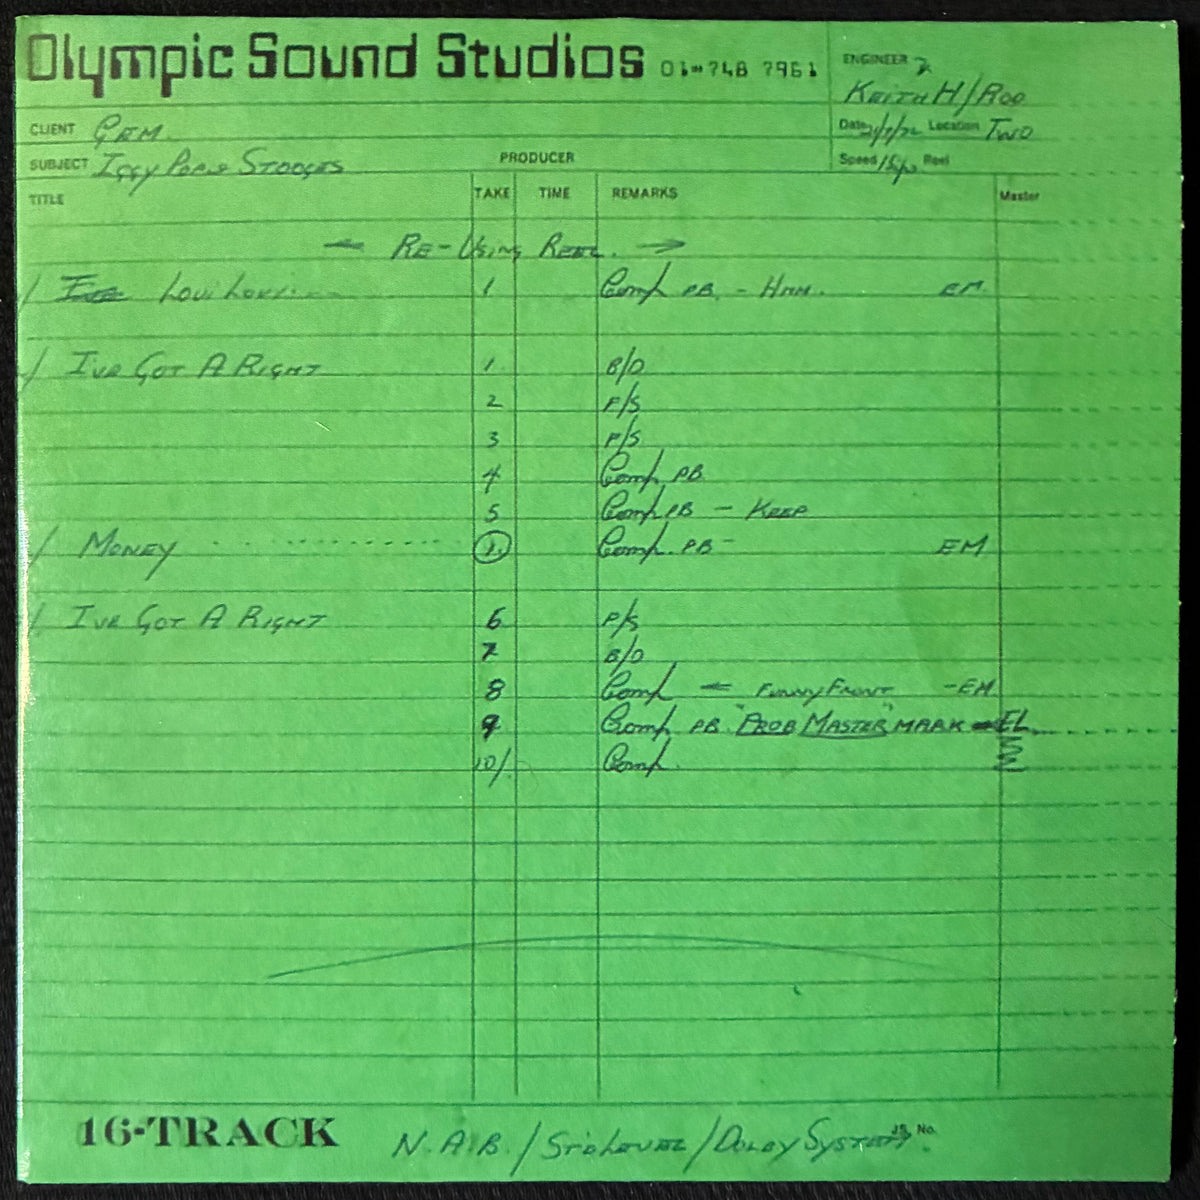 Olympic Sound Studios 01-748 7961
ENGINEER
KEITH H/ROD
CLIENT GEM.
Date Location TWO
SUBJECT IGGY POP & STOOGES PRODUCER
Speed Reel
TITLE TAKE TIME REMARKS Master
← RE-USING REEL. →
/ LOUI LOUI 1 Comp PB. - HMM. EM
/ I'VE GOT A RIGHT 1. B/D
2 F/S
3 F/S
4 Comp PB
5 Comp PB - KEEP
/ MONEY 1. Comp. PB - EM
/ I'VE GOT A RIGHT 6 F/S
7 B/D
8 Comp - FUNNY FRONT - EM
9 Comp PB. "PROB MASTER" MARK EL
10/. Comp.
16-TRACK N.A.B./STD LEVEL/DOLBY SYSTEM. JS. No.